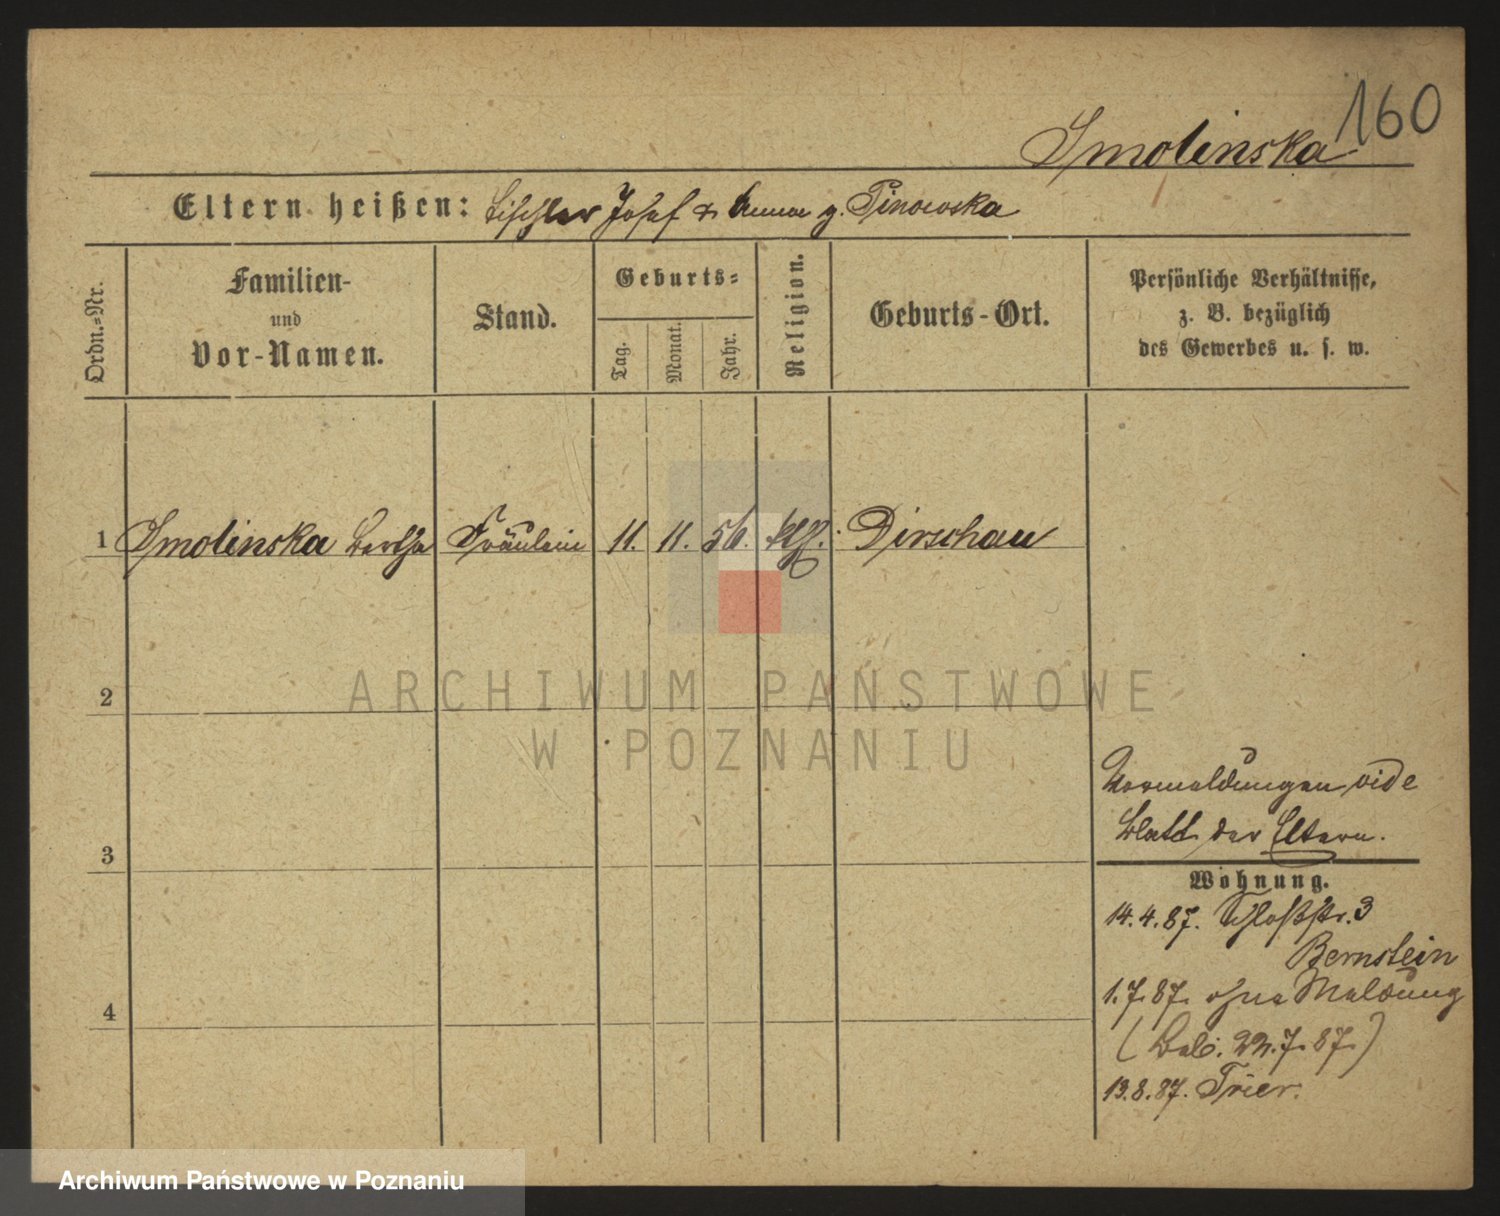 160
Smolinska
Eltern heißen: Tischler Josef & Anna g. Pinowska
Ordn.-Nr.
Familien-
und
Vor-Namen.
Stand.
Geburts-
Tag.
Monat.
Jahr.
Religion.
Geburts-Ort.
Persönliche Verhältnisse,
z. B. bezüglich
des Gewerbes u. s. w.
1 Smolinska Bertha Fräulein 11. 11. 56. kth. Dirschau
2
ARCHIWUM PAŃSTWOWE
W POZNANIU
Vormeldungen vide
Blatt der Eltern.
3
Wohnung.
14.4.87. Schloßstr. 3
Bernstein
1.7.87. ohne Meldung
4
( 22.7.87.)
13.8.87. Trier.
Archiwum Państwowe w Poznaniu